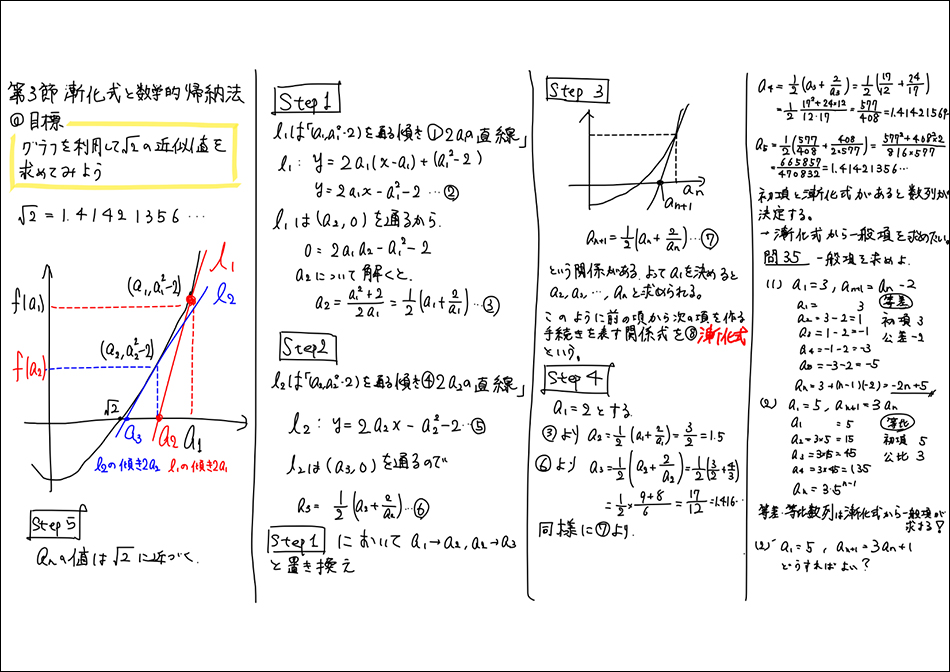 第3節 漸化式と数学的帰納法
◎目標
グラフを利用して√2の近似値を
求めてみよう
√2 = 1.41421356…
l₁
l₂
(a₁, a₁²-2)
f(a₁)
(a₂, a₂²-2)
f(a₂)
√2
a₃ a₂ a₁
l₂の傾き2a₂ l₁の傾き2a₁
Step 5
aₙの値は√2に近づく
Step 1
l₁は「(a₁, a₁²-2)を通る傾き①2a₁の直線」
l₁: y = 2a₁(x-a₁) + (a₁²-2)
y = 2a₁x - a₁² - 2 … ②
l₁は(a₂, 0)を通るから
0 = 2a₁a₂ - a₁² - 2
a₂について解くと、
a₂ = (a₁²+2)/(2a₁) = 1/2(a₁ + 2/a₁) … ③
Step 2
l₂は「(a₂, a₂²-2)を通る傾き④2a₂の直線」
l₂: y = 2a₂x - a₂² - 2 … ⑤
l₂は(a₃, 0)を通るので
a₃ = 1/2(a₂ + 2/a₂) … ⑥
Step 1 において a₁→a₂, a₂→a₃
と置き換え
Step 3
aₙ
aₙ₊₁
aₙ₊₁ = 1/2(aₙ + 2/aₙ) … ⑦
という関係がある。よってa₁を決めると
a₂, a₃, …, aₙと求められる。
このように前の項から次の項を作る
手続きを表す関係式を⑧漸化式
という。
Step 4
a₁ = 2とする
③より a₂ = 1/2(a₁ + 2/a₁) = 3/2 = 1.5
⑥より a₃ = 1/2(a₂ + 2/a₂) = 1/2(3/2 + 4/3)
= 1/2 × (9+8)/6 = 17/12 = 1.416…
同様に⑦より
a₄ = 1/2(a₃ + 2/a₃) = 1/2(17/12 + 24/17)
= 1/2 (17²+24×12)/(12·17) = 577/408 = 1.41421569
a₅ = 1/2(577/408 + 408×2/577) = (577²+408²×2)/(816×577)
= 665857/470832 = 1.41421356…
初項と漸化式があると数列が
決定する。
→ 漸化式から一般項を求めたい。
問35 一般項を求めよ.
(1) a₁=3, aₙ₊₁=aₙ-2
a₁ = 3 等差
a₂=3-2=1 初項 3
a₃=1-2=-1 公差 -2
a₄=-1-2=-3
a₅=-3-2=-5
aₙ=3+(n-1)(-2)=-2n+5
(2) a₁=5, aₙ₊₁=3aₙ
a₁ = 5 等比
a₂=3×5=15 初項 5
a₃=3×15=45 公比 3
a₄=3×45=135
aₙ=3·5ⁿ⁻¹
等差・等比数列は漸化式から一般項が
求まる!
(2)' a₁=5, aₙ₊₁=3aₙ+1
どうすればよい?